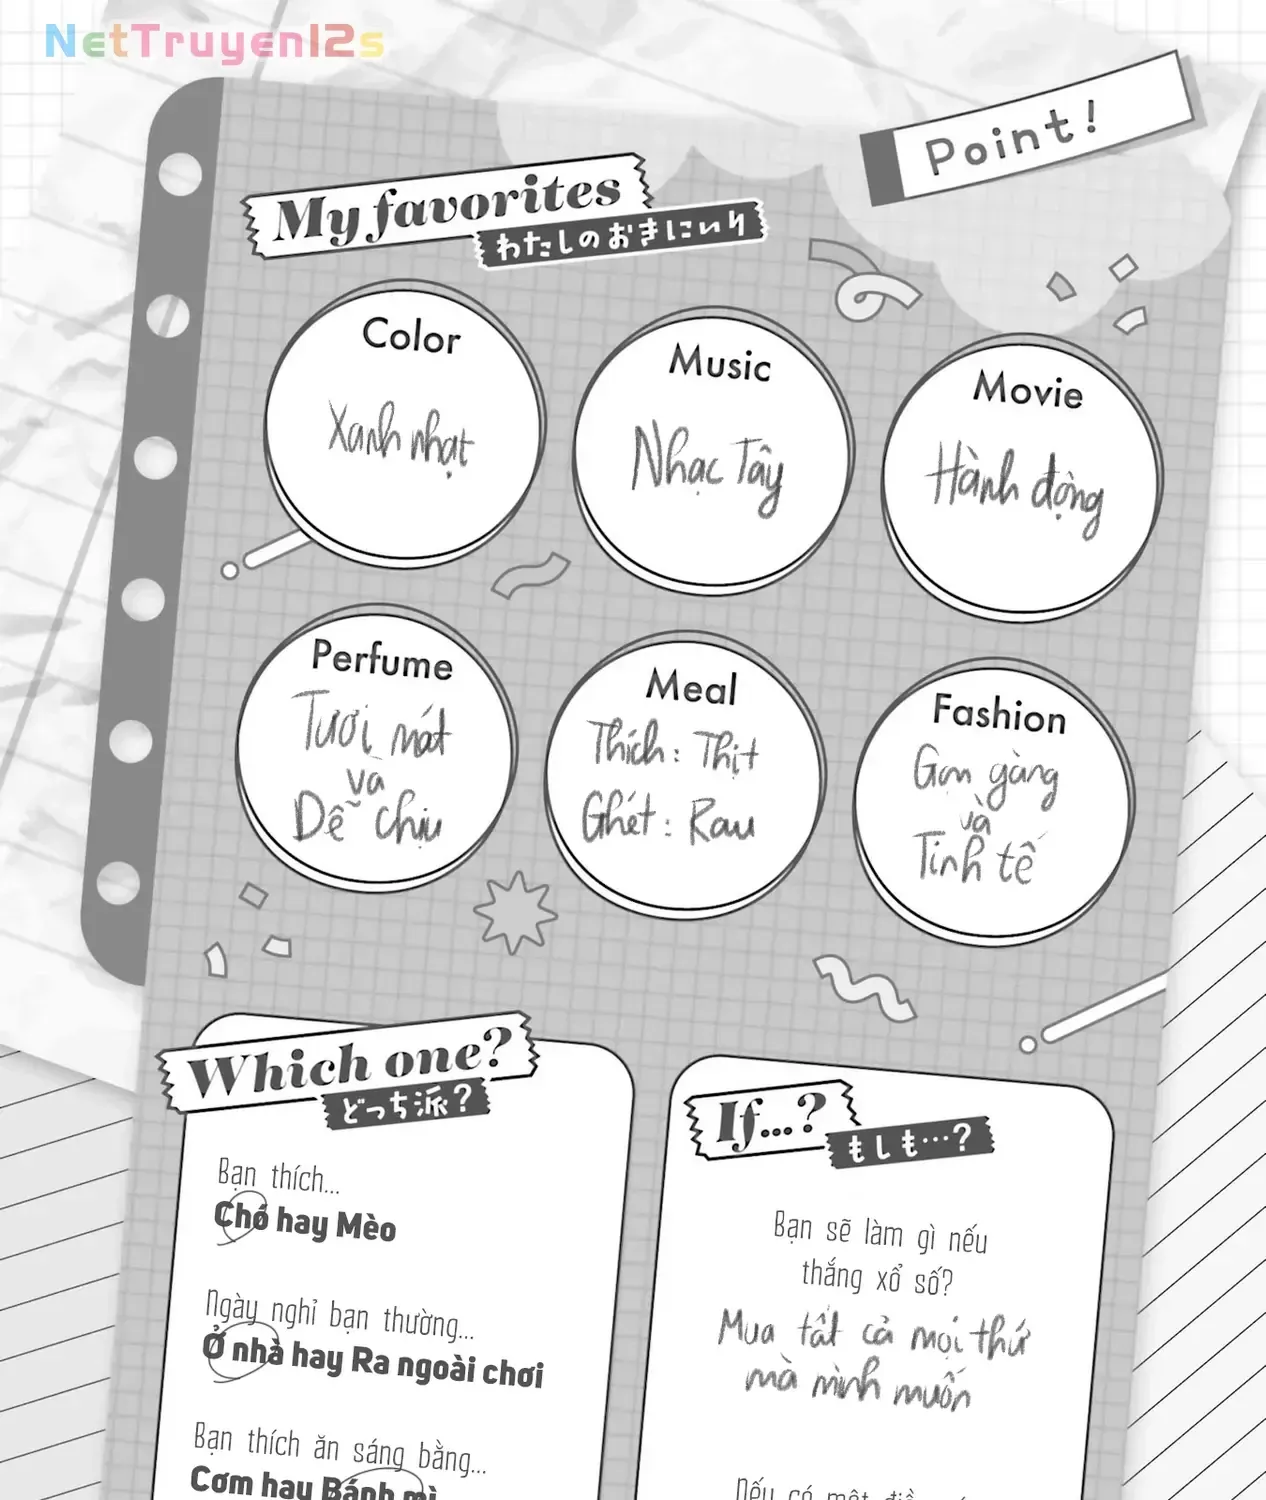 NetTruyen12s
Point!
My favorites
わたしのおきにいり
Color
Xanh nhạt
Music
Nhạc Tây
Movie
Hành động
Perfume
Tươi mát
và
Dễ chịu
Meal
Thích: Thịt
Ghét: Rau
Fashion
Gọn gàng
và
Tinh tế
Which one?
どっち派?
Bạn thích...
Chó hay Mèo
Ngày nghỉ bạn thường...
Ở nhà hay Ra ngoài chơi
Bạn thích ăn sáng bằng...
Cơm hay Bánh mì
If...?
もしも…?
Bạn sẽ làm gì nếu
thắng xổ số?
Mua tất cả mọi thứ
mà mình muốn
Nếu có một